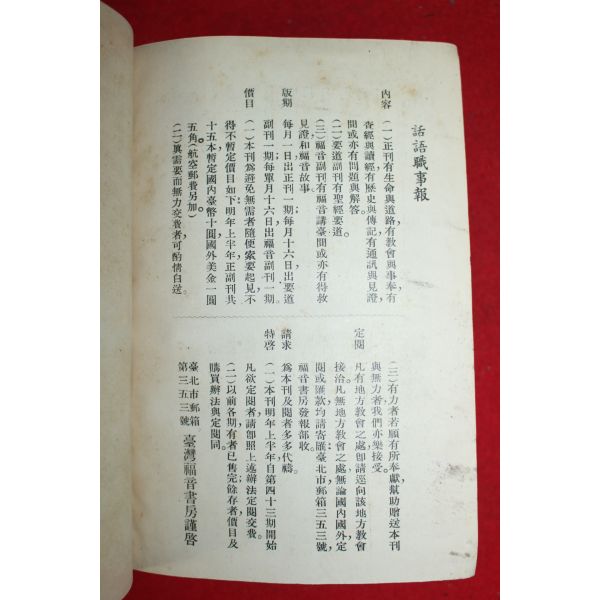 話語職事報
內容
(一)正刊有生命與道路,有教會與事奉,有
查經與讀經,有歷史與傳記,有通訊與見證,
間或亦有問題與解答。
(二)要道副刊有聖經要道。
(三)福音副刊有福音講臺,間或亦有得救
見證和福音故事。
版期
每月一日出正刊一期,每月十六日出要道
副刊一期,每單月十六日出福音副刊一期。
價目
(一)本刊爲避免無需者隨便索要起見,不
得不暫定價目如下:明年上半年正副刊共
十五本,暫定國內臺幣十圓,國外美金一圓
五角。(航空郵費另加。)
(二)真需要而無力交費者,可酌情白送。
(三)有力者若願有所奉獻,幫助贈送本刊
與無力者,我們亦樂接受。
定閱
凡有地方教會之處,卽請逕向該地方教會
接洽。凡無地方教會之處,無論國內國外,定
閱或匯款,均請寄臺北市郵箱三五三號,
福音書房發報部收。
請求
爲本刊及閱者多多代禱。
特啓
(一)本刊明年上半年自第四十三期開始,
凡欲定閱者,請卽照上述辦法定閱交費。
(二)以前各期,有者已售完,餘存者價目及
購買辦法與定閱同。
臺北市郵箱
第三五三號
臺灣福音書房謹啓